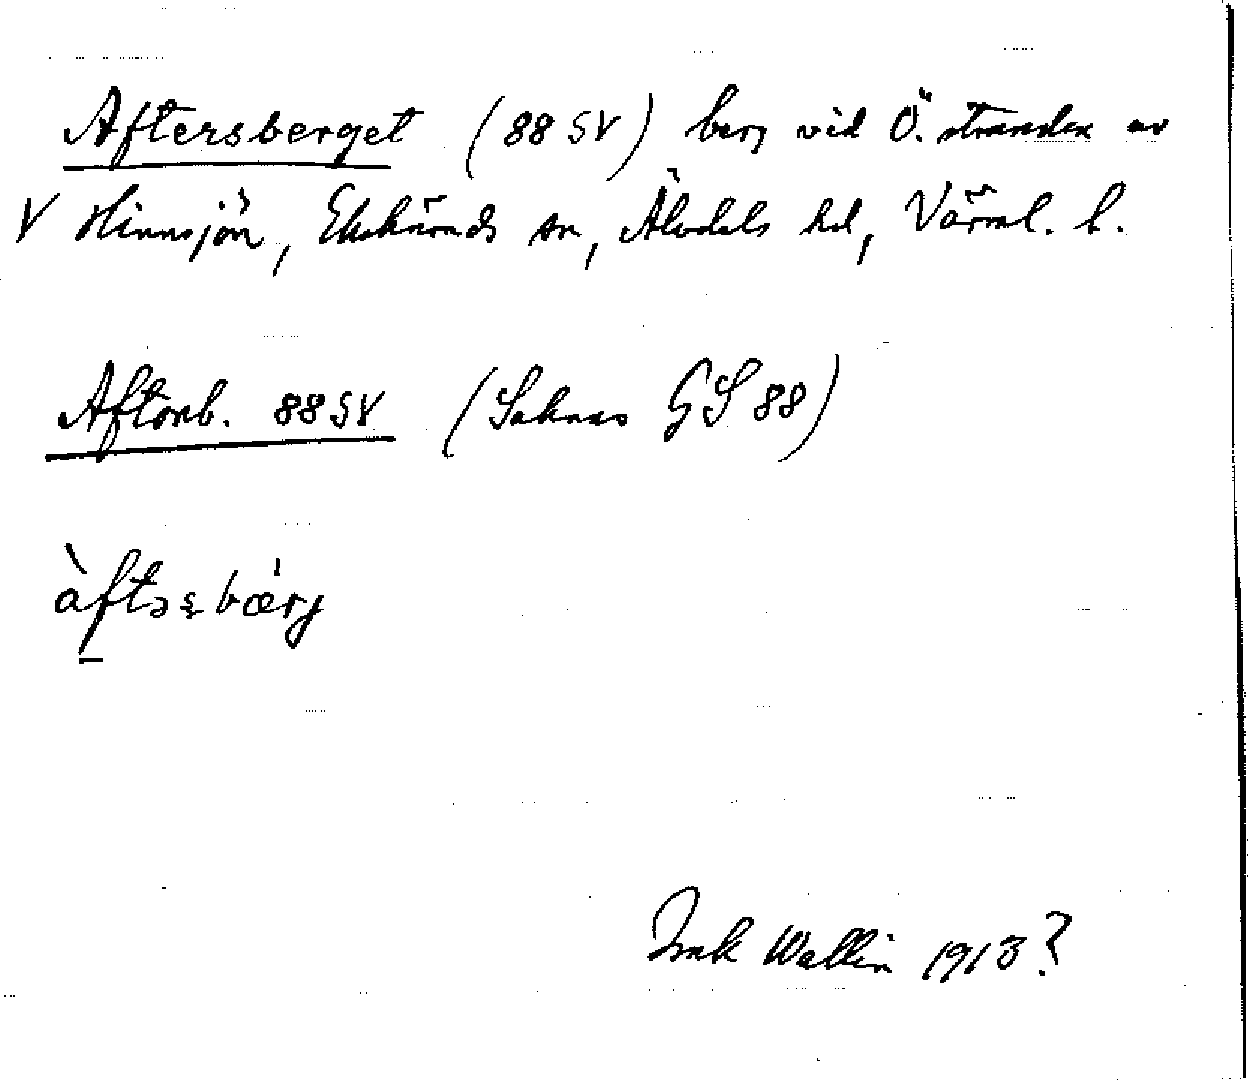 Aftersberget (88 SV) berg vid Ö. stranden av
V Hinnsjön, Ekshärads sn, Älvdals hd, Värml. l.
Aftonb. 88 SV (Saknas GS 88)
àftəʂbærj
Wallin 1913?